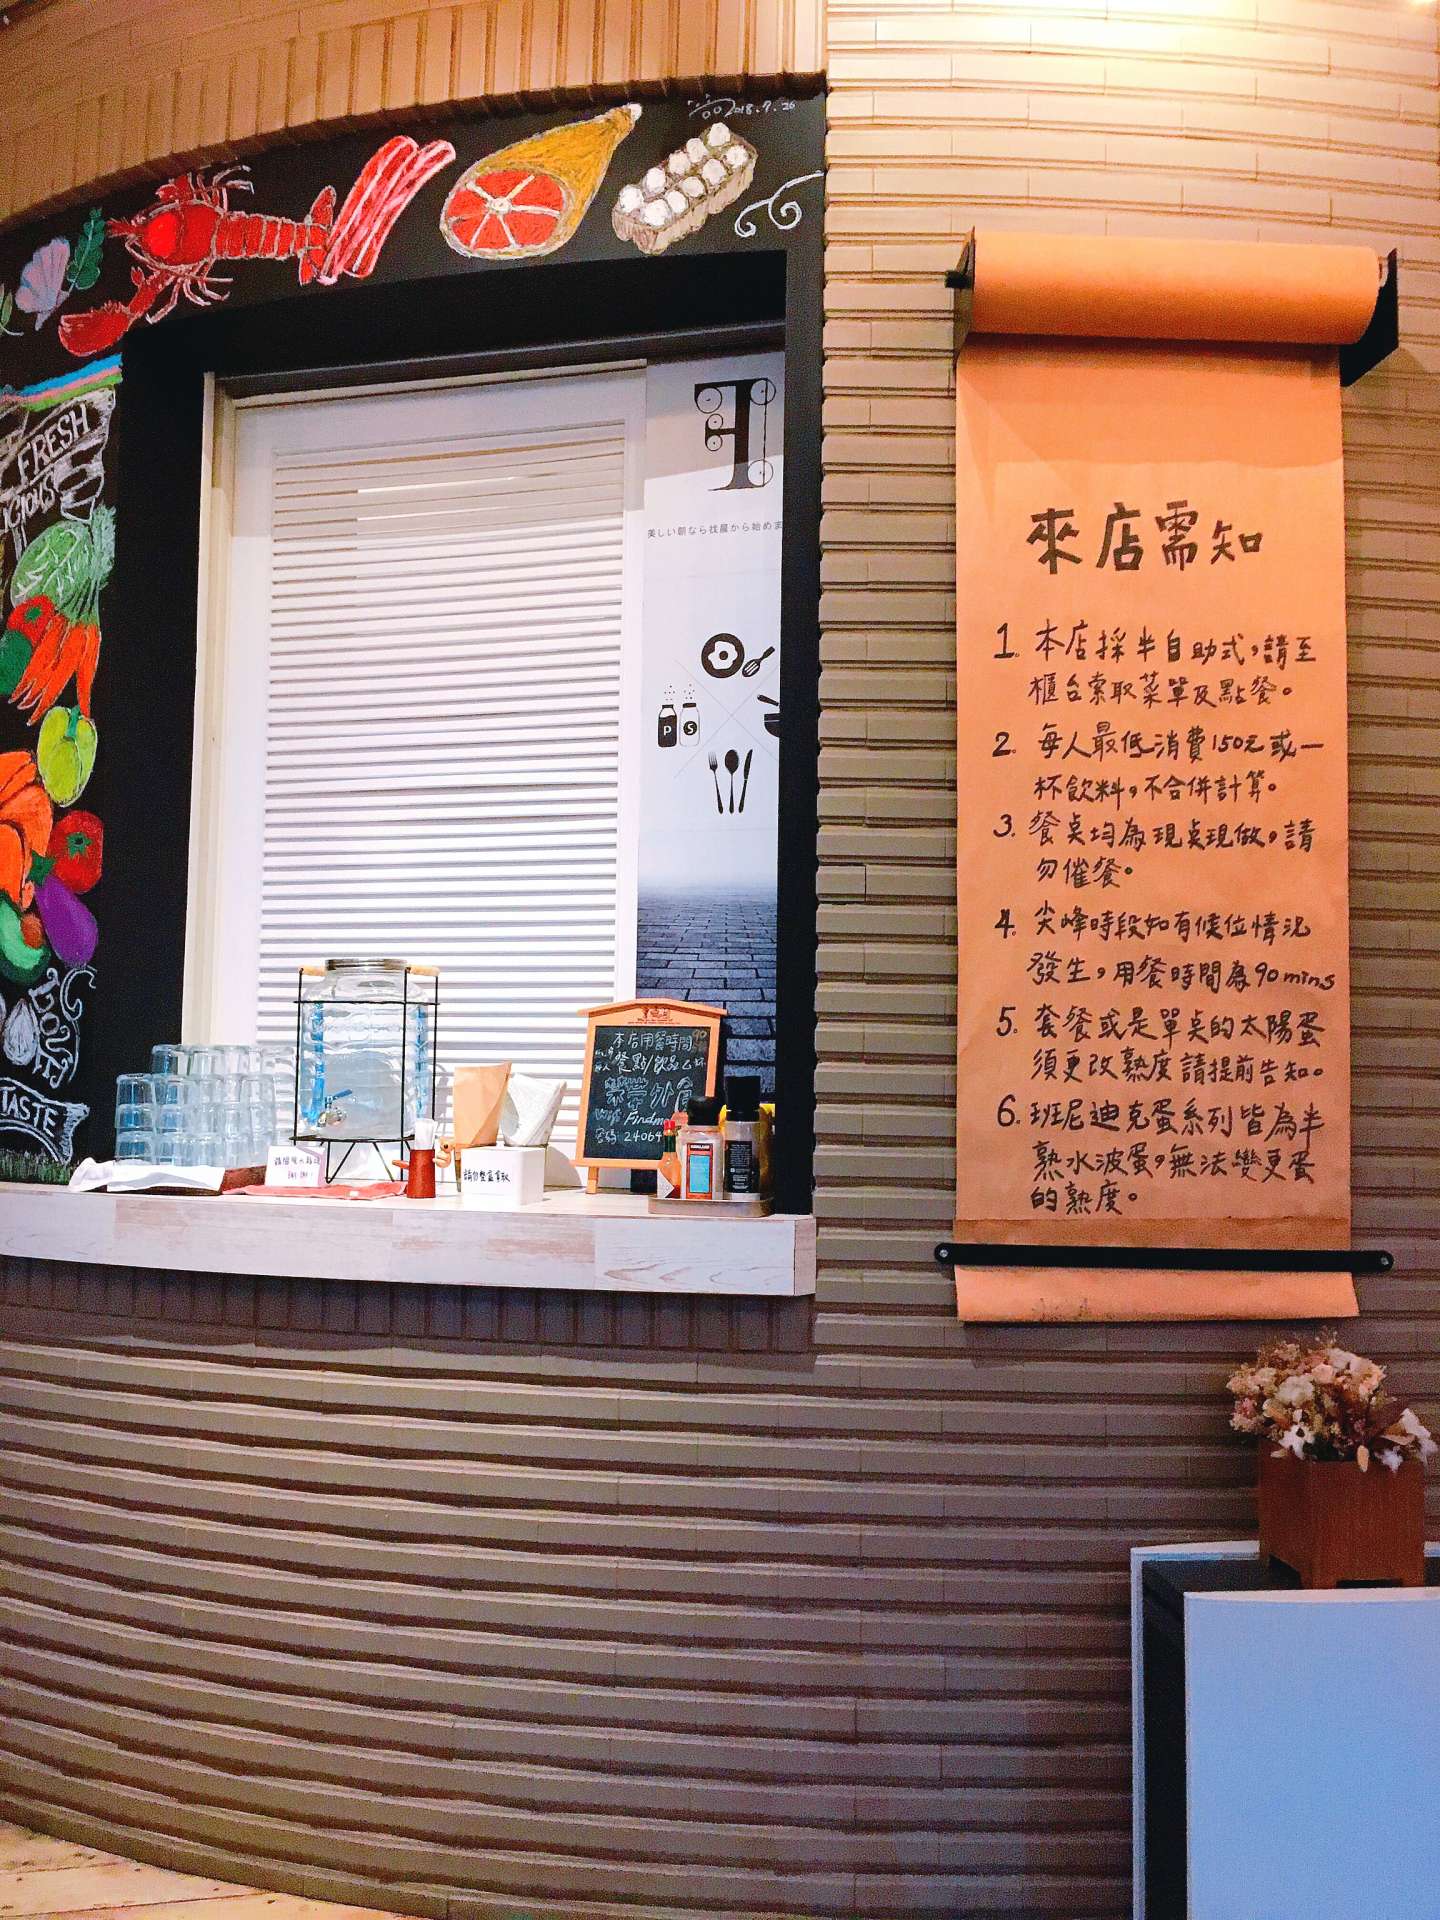 2018.7.26
FRESH
美しい朝なら找晨から始めま
P S
TASTE
本店用餐時間90
餐點/飲品乙杯
禁帶外食
24064
請自整盒拿取
來店需知
1. 本店採半自助式,請至
櫃台索取菜單及點餐。
2. 每人最低消費150元或一
杯飲料,不合併計算。
3. 餐桌均為現桌現做,請
勿催餐。
4. 尖峰時段如有候位情況
發生,用餐時間為90mins
5. 套餐或是單桌的太陽蛋
須更改熟度請提前告知。
6. 班尼迪克蛋系列皆為半
熟水波蛋,無法變更蛋
的熟度。